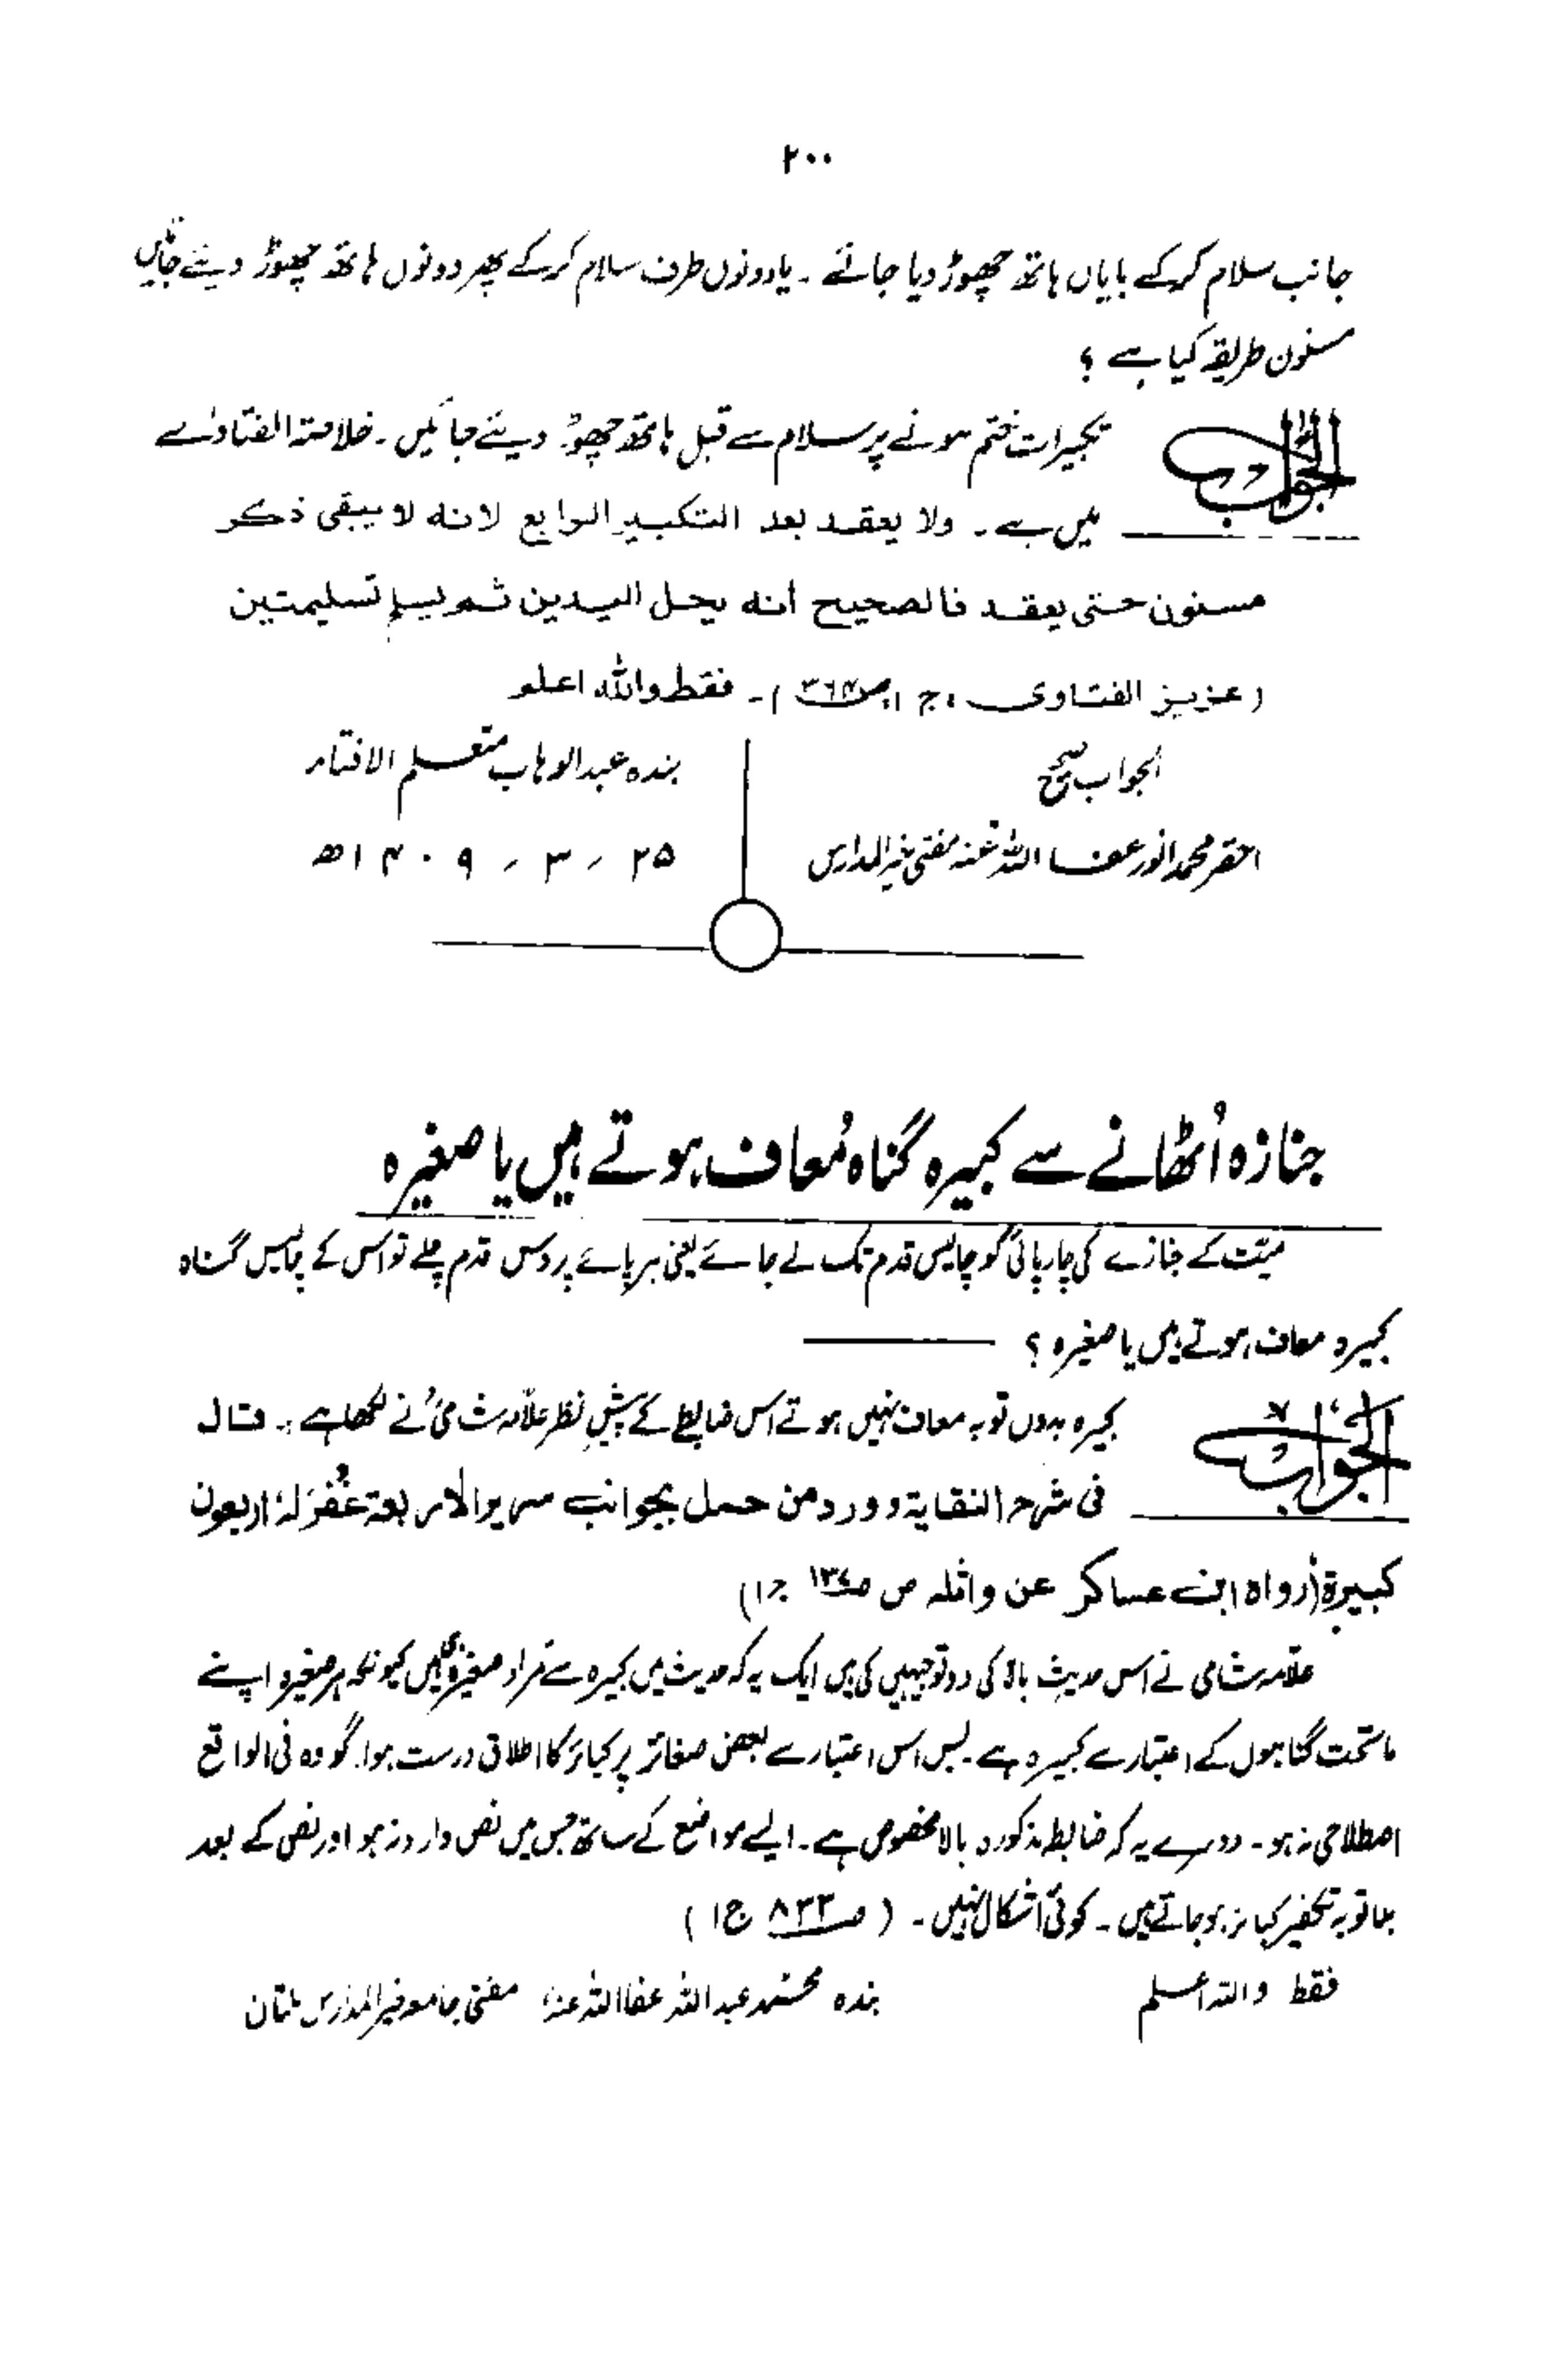 ۲۰۰
جانب سلام کرکے بایاں ہاتھ چھوڑ دیا جائے ۔ یا دونوں طرف سلام کرکے پھر دونوں ہاتھ چھوڑ دیئے جائیں
مسنون طریقہ کیا ہے ؟
الجواب
تکبیرات ختم ہونے پر سلام سے قبل ہاتھ چھوڑ دیئے جائیں ۔ خلاصۃ الفتاوٰے
میں ہے ۔ ولا یعقد بعد التکبیر الرابع لانہ لا یبقی ذکر
مسنون حتی یعقد فالصحیح أنہ یحل الیدین ثم یسلم تسلیمتین
( عزیز الفتاوی ، ج ۱، ص ) ۔ فقط واللہ اعلم
الجواب صحیح
احقر محمد انور عفا اللہ عنہ مفتی خیر المدارس
بندہ عبد الوہاب متعلم الافتاء
۲۵ ؍ ۳ ؍ ۱۴۰۹ھ
جنازہ اُٹھانے سے کبیرہ گناہ مُعاف ہوتے ہیں یا صغیرہ
میّت کے جنازے کی چارپائی کو چالیس قدم تک لے جائے یعنی ہر پائے پر دس قدم چلے تو اس کے چالیس گناہ
کبیرہ معاف ہوتے ہیں یا صغیرہ ؟
الجواب
کبیرہ بدوں توبہ معاف نہیں ہوتے اس ضابطے کے پیشِ نظر علّامہ شامیؒ نے لکھا ہے :۔ قال
فی شرح النقایة و ورد من حمل بجوانب سریر الاربعة غُفِرَ لہٗ اربعون
کبیرة (رواہ ابن عساکر عن واثلہ ص ج۱)
علامہ شامی نے اس حدیث بالا کی دو توجیہیں کی ہیں ایک یہ کہ حدیث میں کبیرہ سے مُراد صغیرہ ہی ہیں کیونکہ ہر صغیرہ اپنے
ماتحت گناہوں کے اعتبار سے کبیرہ ہے ۔ پس اس اعتبار سے بعض صغائر پر کبائر کا اطلاق درست ہوا. گو وہ فی الواقع
اصطلاحی نہ ہو ۔ دوسرے یہ کہ ضابطہ مذکورہ بالا مخصوص ہے ۔ ایسے مواضع کے ساتھ جس میں نص وارد نہ ہو اور نص کے بعد
بلا توبہ تکفیر کبائر ہو جاتے ہیں ۔ کوئی اشکال نہیں ۔ ( ص۸۳۳ ج۱ )
فقط واللہ اعلم
بندہ محمد عبد اللہ عفا اللہ عنہٗ مفتی جامعہ خیر المدارس ملتان